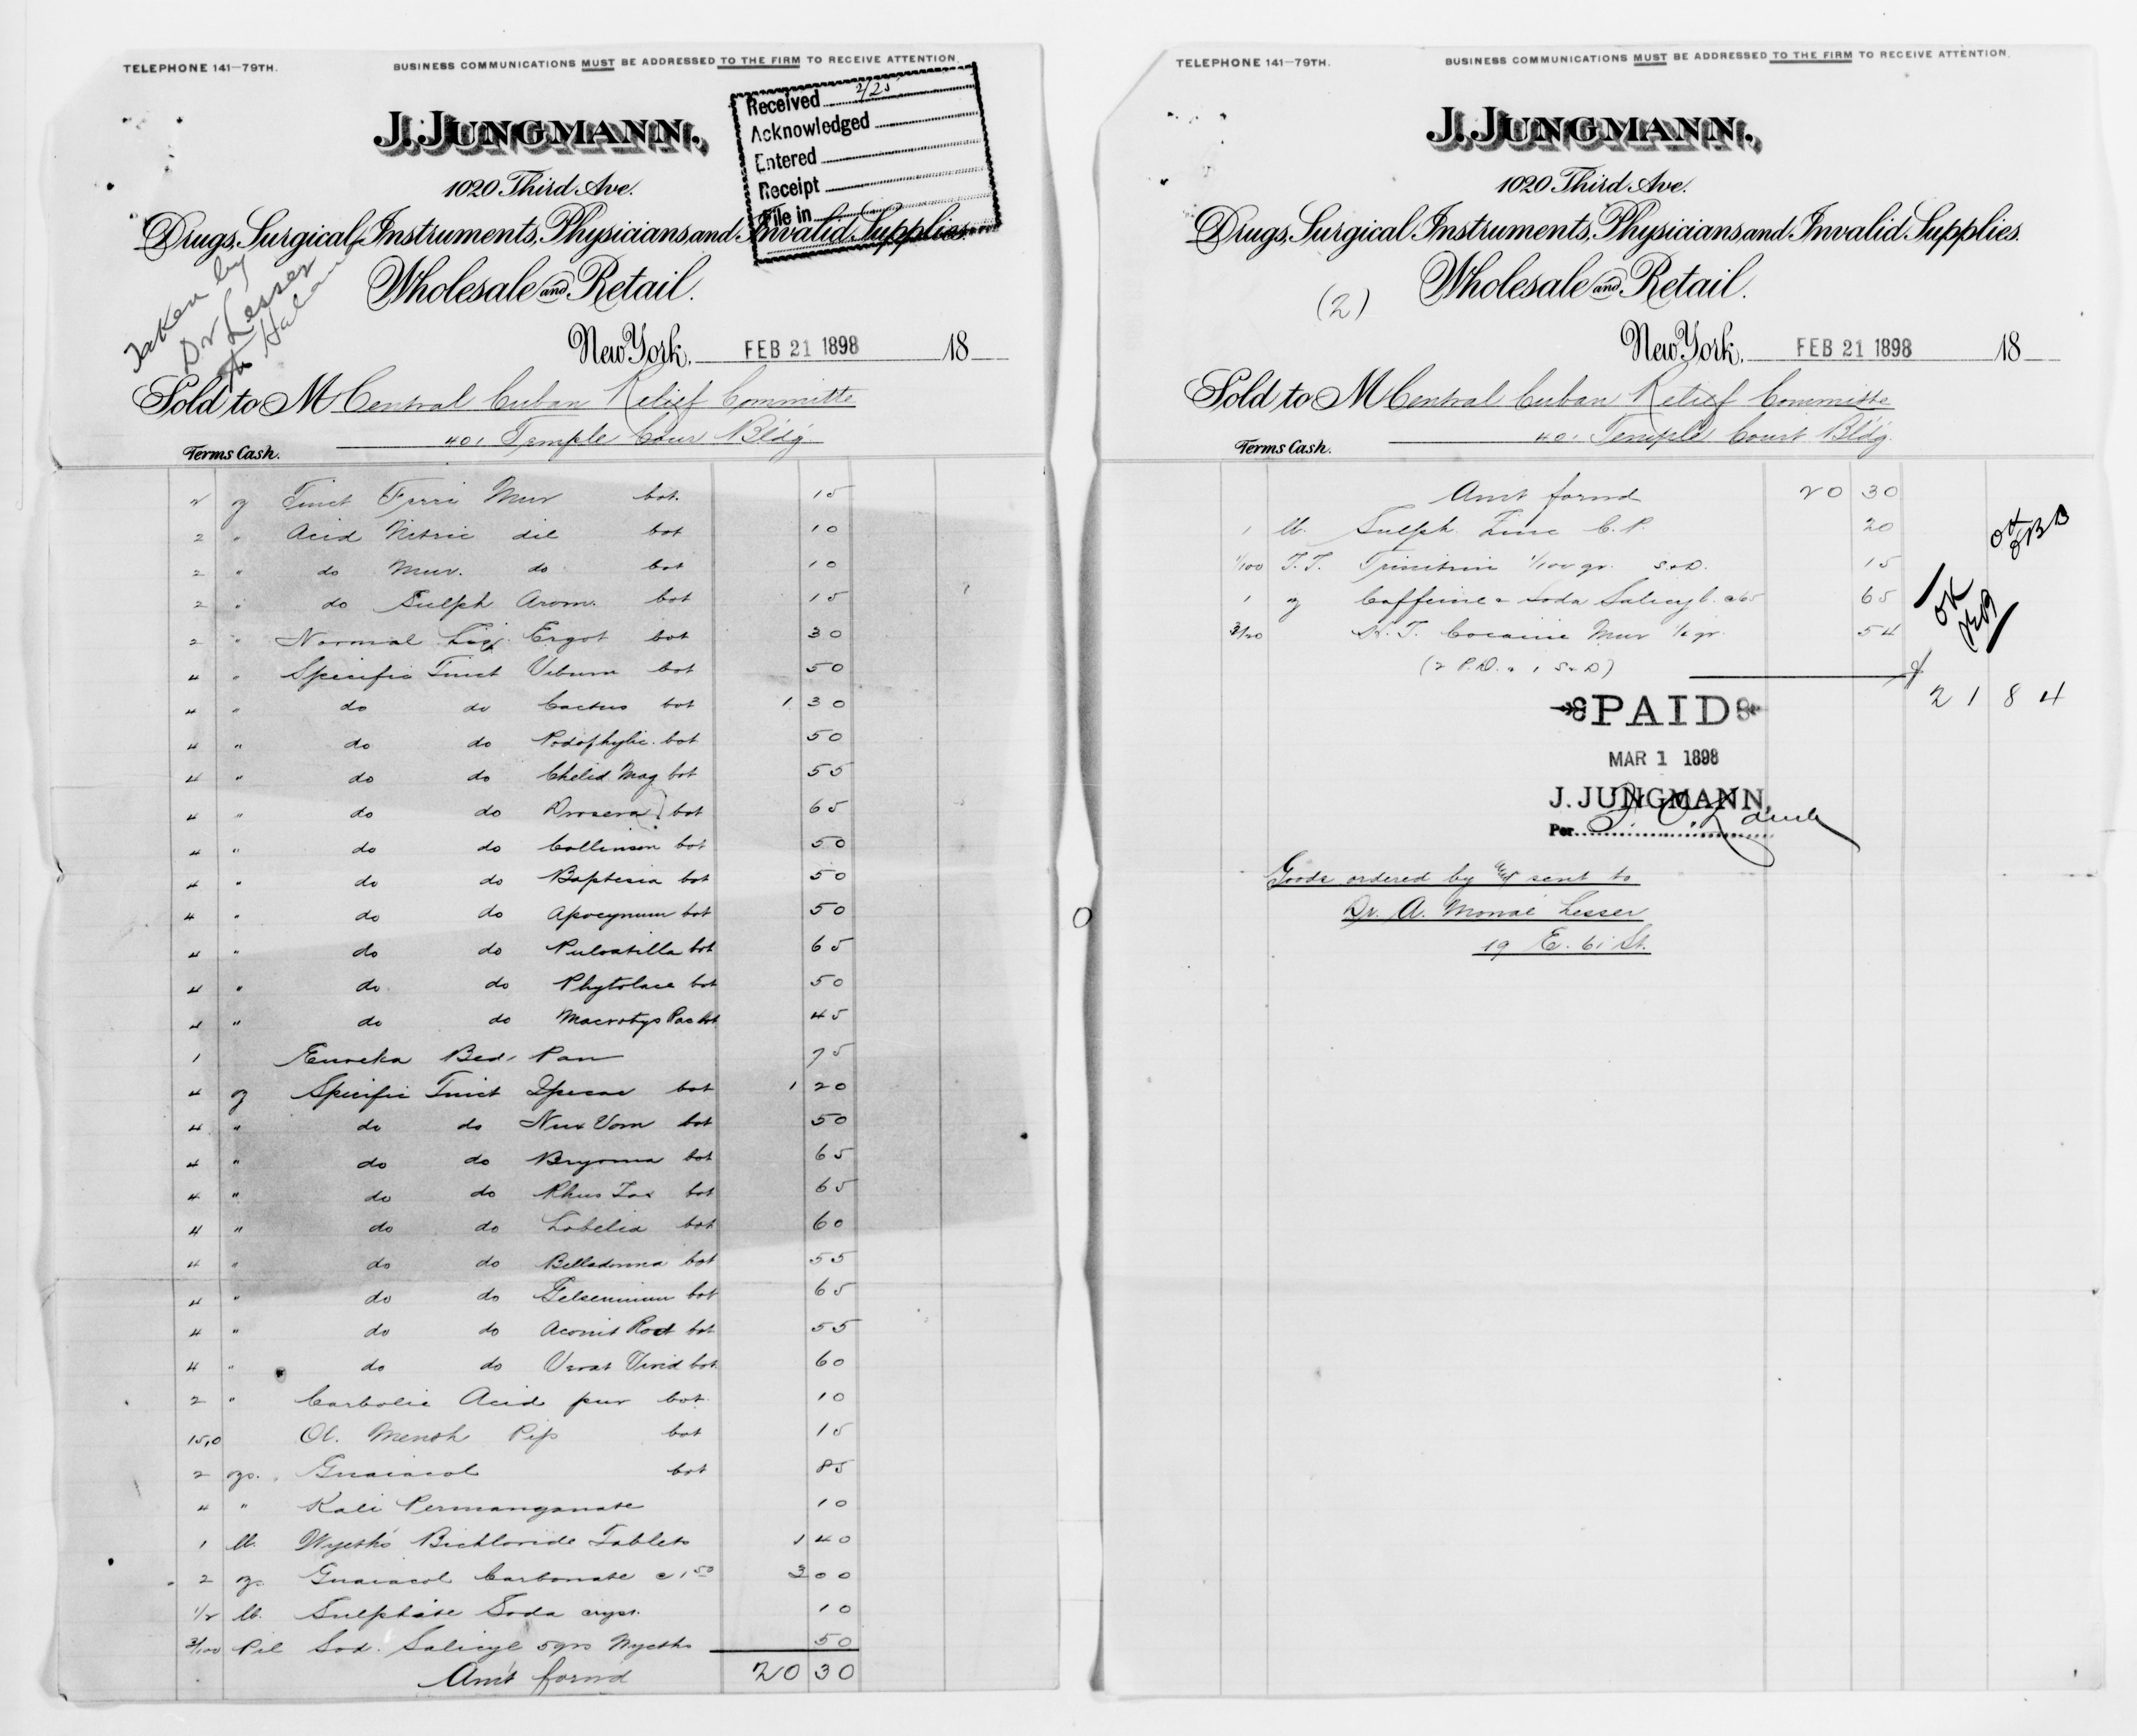 TELEPHONE 141–79TH.
BUSINESS COMMUNICATIONS MUST BE ADDRESSED TO THE FIRM TO RECEIVE ATTENTION.
J. JUNGMANN.,
1020 Third Ave.
Drugs, Surgical Instruments, Physicians and Invalid Supplies.
Wholesale and Retail.
Received 2/25
Acknowledged
Entered
Receipt
File in
Taken by
Dr Lesser
to
New York, FEB 21 1898 18
Sold to M Central Cuban Relief Committe
401 Temple Cour Bldg
Terms Cash.
2 oz Tinct Ferri Mur bot. 15
2 " Acid Nitric dil bot 10
2 " do Mur. do bot 10
2 " do Sulph Arom. bot 15
2 " Normal Liq. Ergot bot 30
4 " Specific Tinct Viburn bot 50
4 " do do Cactus bot 1 30
4 " do do Podophylic. bot 50
4 " do do Chelid Mag bot 55
4 " do do Drosera bot 65
4 " do do Collinson bot 50
4 " do do Baptesia bot 50
4 " do do Apocynum bot 50
4 " do do Pulsatilla bot 65
4 " do do Phytolace bot 50
4 " do do Macrotys Rac bot 45
1 Eureka Bed Pan 75
4 oz Specific Tinct Ipecac bot 1 20
4 " do do Nux Vom bot 50
4 " do do Bryonia bot 65
4 " do do Rhus Tox bot 65
4 " do do Lobelia bot 60
4 " do do Belladonna bot 55
4 " do do Gelseminum bot 65
4 " do do Aconit Root bot 55
4 " do do Verat Virid bot. 60
2 " Carbolic Acid pur bot. 10
15,0 Ol. Menth Pip bot 15
2 ozs. Guaiacol bot 85
4 " Kali Permanganate 10
1 lb. Wyeth's Bichloride Tablets 1 40
2 oz. Guaiacol Carbonate @ 1.50 3 00
1/2 lb. Sulphite Soda cryst. 10
3/100 Pil Sod. Salicyl 5 grs Wyeths 50
Am't forw'd 20 30
TELEPHONE 141–79TH.
BUSINESS COMMUNICATIONS MUST BE ADDRESSED TO THE FIRM TO RECEIVE ATTENTION.
J. JUNGMANN.,
1020 Third Ave.
Drugs, Surgical Instruments, Physicians and Invalid Supplies.
Wholesale and Retail.
(2)
New York, FEB 21 1898 18
Sold to M Central Cuban Relief Committe
401 Temple Court Bldg.
Terms Cash.
Amt forwd 20 30
1 lb. Sulph. Zinc C.P. 20
1/100 T.T. Trinitrin 1/100 gr. S&D. 15
1 oz Caffeine & Soda Salicyl. @ 65 65
3/20 H.T. Cocaine Mur 1/2 gr. 54
(2 P.D. & 1 S&D)
$ 21 84
OK
OK
PAID
MAR 1 1898
J. JUNGMANN,
Per
Goods ordered by & sent to
Dr. A. Monae Lesser
19 E. 61 St.